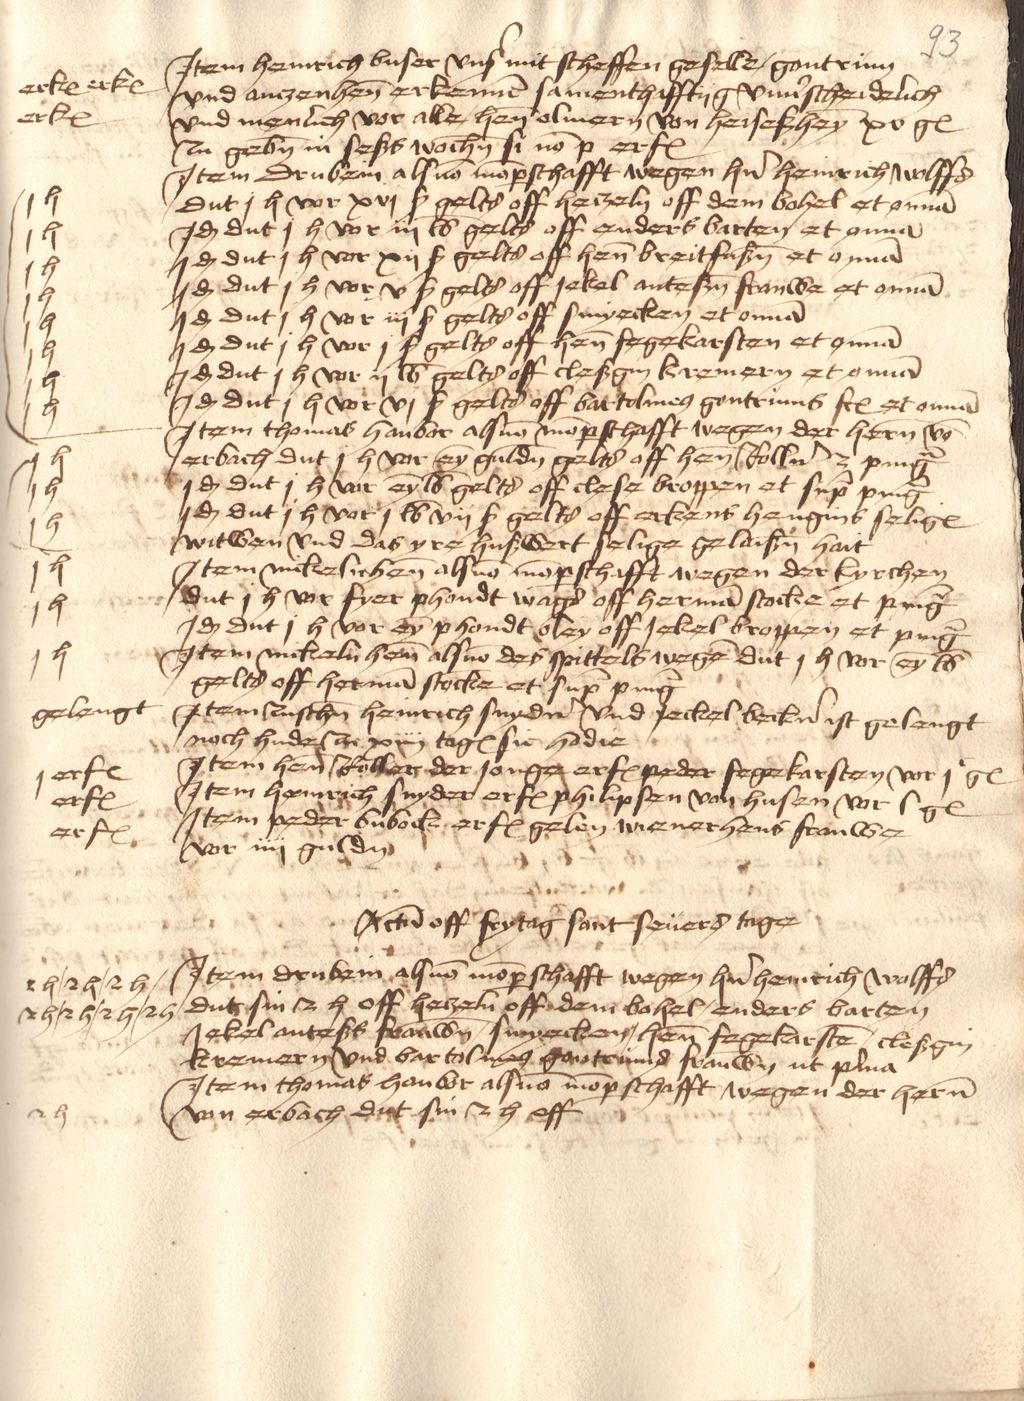 93
Item heinrich buser unser mit scheffen geselle / gontrum
erkñ erkñ und antzenhen erkennen samenthafftig unverscheidelich
erkñ und menlich vor alle hen olmern von heiseßhey xv gl
zu geben in seßs wochen si no p erfl
Item drubein als vom momperschafft wegen her heinrich wolffs
j h dut j h vor xvj ß gelts off hetzeln off dem bohel et omnia
j h Id dut j h vor iij lb gelts off enders barten et omnia
j h Id dut j h vor xij ß gelts off hen breitfußen et omnia
j h Id dut j h vor v ß gelts off Jekel anteßen frauwe et omnia
j h Id dut j h vor iij ß gelts off snyecken et omnia
j h Id dut j h vor j ß gelts off hen fegekarsten et omnia
j h Id dut j h vor ij lb gelts off cleßgin kremern et omnia
j h Id dut j h vor vj ß gelts off bartolmeus gontrums et omnia
Item thomas haubor als vom momperschafft wegen der hern von
j h erbach dut j h vor ey gulden gelts off hen koller z ping
j h Id dut j h vor ey lb gelts off clese broppen et sup ping
j h Id dut j h vor j lb vij ß gelts off erkens hengins selige
witwen und das yre hußwert selige gelaißen hait
j h Item nickelichen als vom momperschafft wegen der kyrchen
j h dut j h vor fyer phondt wags off herman stocke et ping
Id dut j h vor ey phondt oley off Jekel broppen et ping
j h Item nickeln hen als vo des spittels wegen dut j h vor ey lb
gelts off herman stocke et sup ping
gelengt Item zuschen heinrich snyder und peckel becker ist gelengt
noch hude zu xiiij tage sic hodie
j erfl Item hen koller der jonge erfl peder fegekarsten vor j gl
erfl Item heinrich snyder erfl philipsen von husen vor l gl
erfl Item peder bubock erfl gelen wienerhens frauwe
vor iiij gulden
Actum off frytag sant severs tage
2 h / 2 h / 2 h / Item drubein als vom momperschafft wegen her heinrich wolffs
2 h / 2 h / 2 h / 2 h dut sin 2 h off hetzeln off dem bohel / enders barten
Jekel anteßs frauwen / snyecken / hen fegekarsten / cleßgin
kremern und bartolmeus gontrums frauwen ut prima
Item thomas haubor als vom momperschafft wegen der hern
2 h von erbach dut sin 2 h off